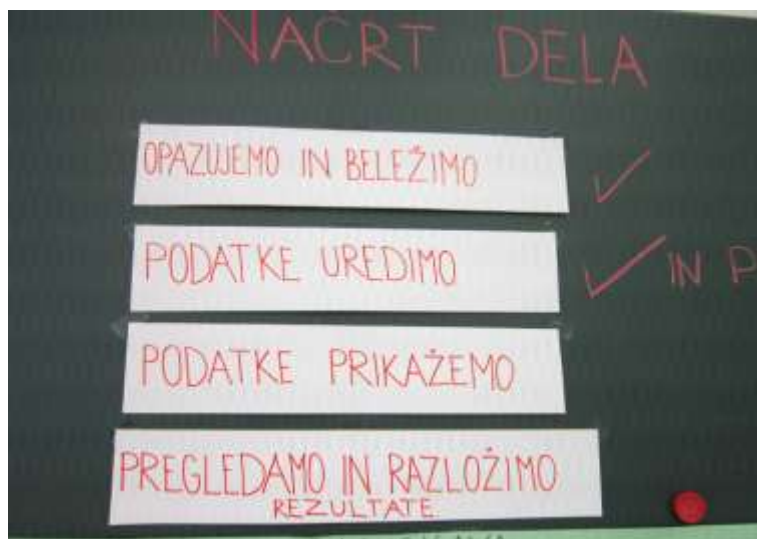 NAČRT DELA
OPAZUJEMO IN BELEŽIMO
PODATKE UREDIMO
IN P
PODATKE PRIKAŽEMO
PREGLEDAMO IN RAZLOŽIMO
REZULTATE